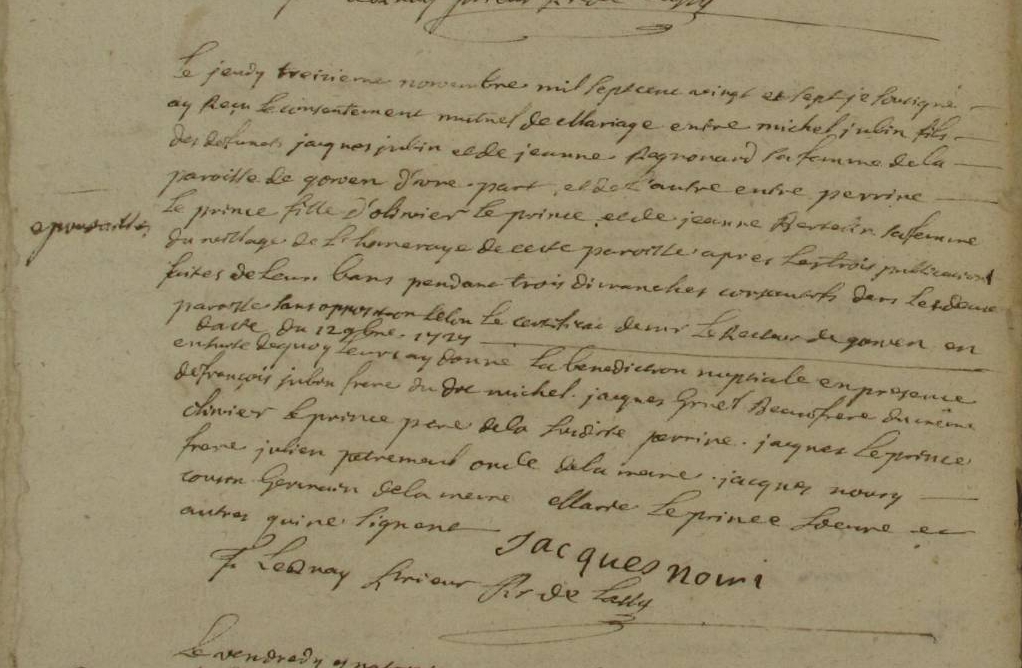 Le jeudy treizieme novembre mil sept cent vingt et sept je sousigné
ay Reçu le consentement mutuel de Mariage entre michel jubin fils
des defuncts jacques jubin et de jeanne Regnouard sa femme de la
paroisse de goven d'vne part, et de L'autre entre perrine
Le prince fille d'olivier Le prince et de jeanne Bertelir sa femme
du village de L'homeraye de cette paroisse apres Les trois publications
faites de Leurs bans pendant trois dimanches consecutifs dans Les deux
paroisses sans opposition selon Le certificat de mr Le Recteur de goven en
datte du 12 9bre 1727
ensuite dequoy Leurs ay donné La benediction nuptiale en presence
de françois jubin frere du dit michel. jacques Gruel Beaufrere du même
olivier Le prince pere de la susditte perrine. jacques Le prince
frere julien petremoul oncle de la meme. jacques noury
cousin Germain de la meme Marie Le prince soeure et
autres qui ne signent
epousailles
jacques nouri
F. Prieur Rr de Lassy
Le vendredy